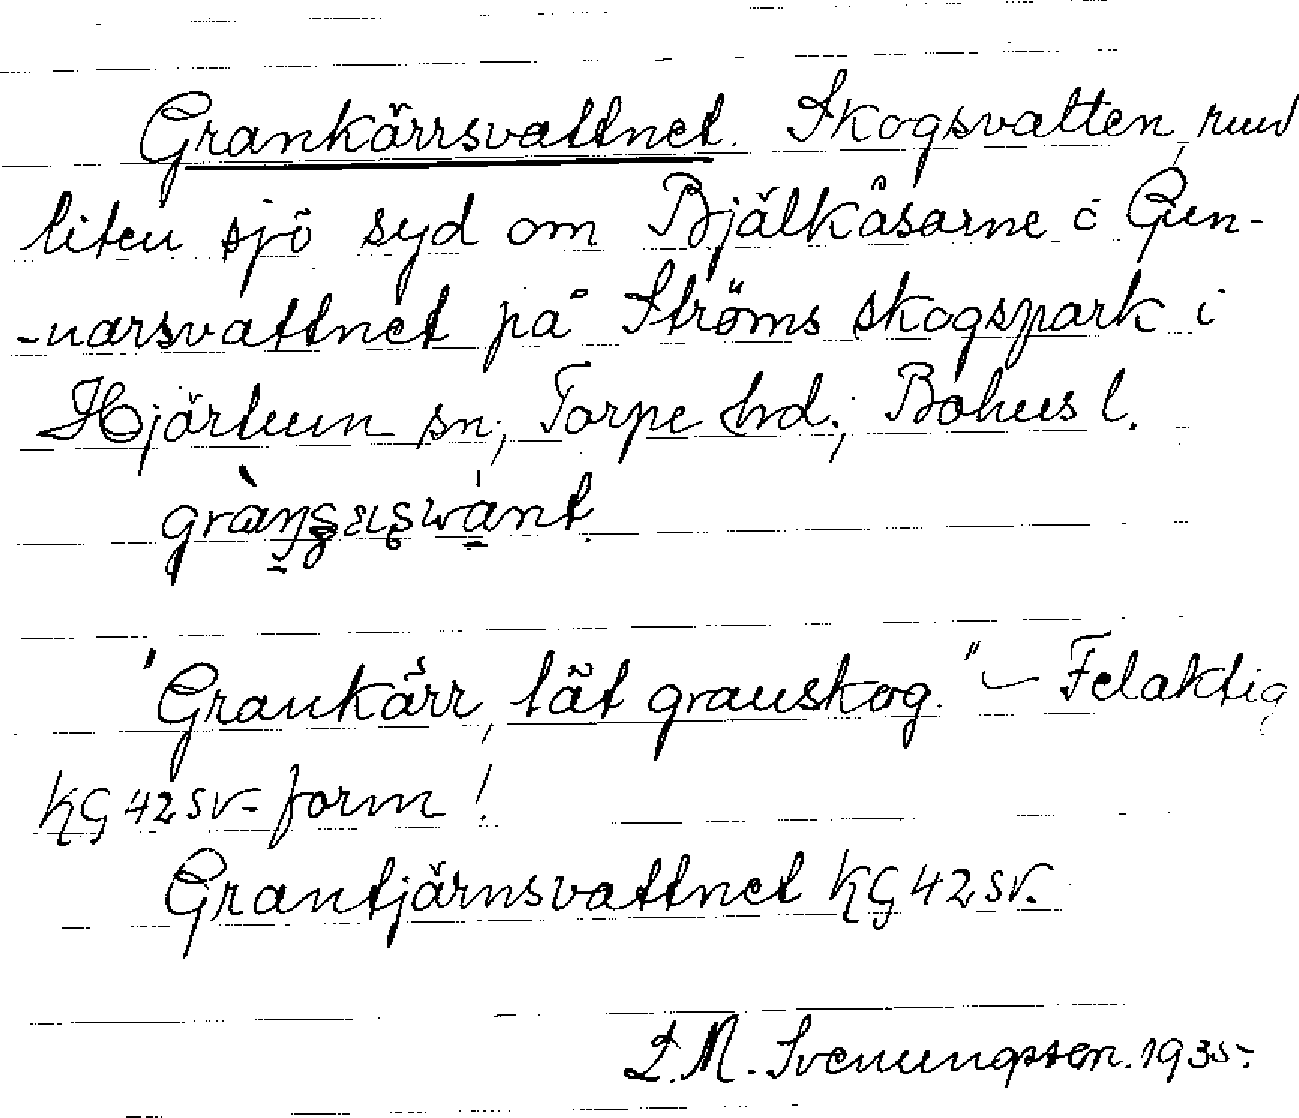 Grankärrsvattnet. Skogsvatten, rund
liten sjö syd om Bjälkåsarne i Gun-
-narsvattnet på Ströms skogspark i
Hjärtum sn, Torpe hd.; Bohus l.
"Grankärr, tät granskog." – Felaktig
KG 42 SV-form!
Grantjärnsvattnet KG 42 SV.
L. M. Svenungsson. 1935.